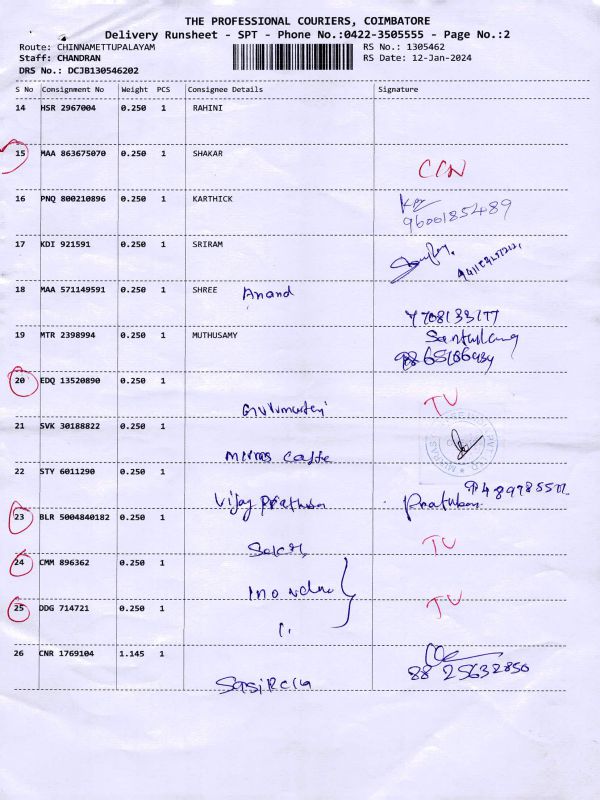 THE PROFESSIONAL COURIERS, COIMBATORE
Delivery Runsheet - SPT - Phone No.:0422-3505555 - Page No.:2
Route: CHINNAMETTUPALAYAM RS No.: 1305462
Staff: CHANDRAN RS Date: 12-Jan-2024
DRS No.: DCJB130546202
S No Consignment No Weight PCS Consignee Details Signature
14 HSR 2967004 0.250 1 RAHINI
15 MAA 863675070 0.250 1 SHAKAR
16 PNQ 800210896 0.250 1 KARTHICK
9600185489
17 KDI 921591 0.250 1 SRIRAM
18 MAA 571149591 0.250 1 SHREE Anand
19 MTR 2398994 0.250 1 MUTHUSAMY
20 EDQ 13520890 0.250 1
TU
21 SVK 30188822 0.250 1
22 STY 6011290 0.250 1
Vijay
23 BLR 5004840182 0.250 1
TU
24 CMM 896362 0.250 1
25 DDG 714721 0.250 1
TU
26 CNR 1769104 1.145 1
88 25632850